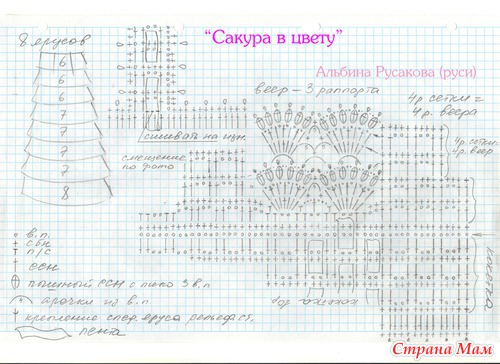 "Сакура в цвету"
8 ярусов
Альбина Русакова (руси)
веер - 3 раппорта
4р. сетки =
4р. веера
6
6
6
7
7
7
7
8
сшивать на изн.
смещение
по фото
4р. сетки=
4р. веера
кокетка
в.п.
сбн
п/с
ссн
пышный ССН с пико 3 в.п
арочки из в.п
крепление след. яруса
пента
кокетка
Страна Мам